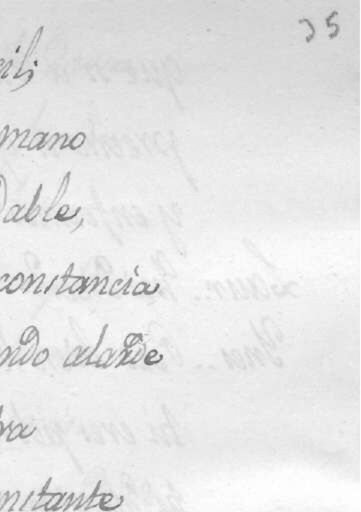 35
il;
mano
dable,
constancia
ndo alarde
ra
nstante